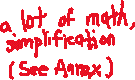 a lot of math,
simplification
(See Annex)